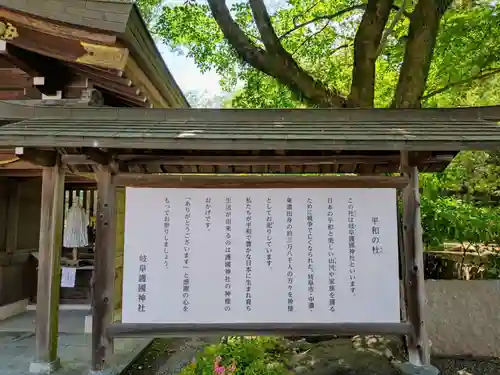 平和の杜
この社は岐阜護國神社といいます。
日本の平和と美しい山河や家族を護る
ために戦争で亡くなられた、岐阜市・中濃・
東濃出身の約三万八千人の方々を神様
としてお祀りしています。
私たちが平和で豊かな日本に生まれ育ち
生活が出来るのは護國神社の神様の
おかげです。
「ありがとうございます」と感謝の心を
もってお参りしましょう。
岐阜護國神社